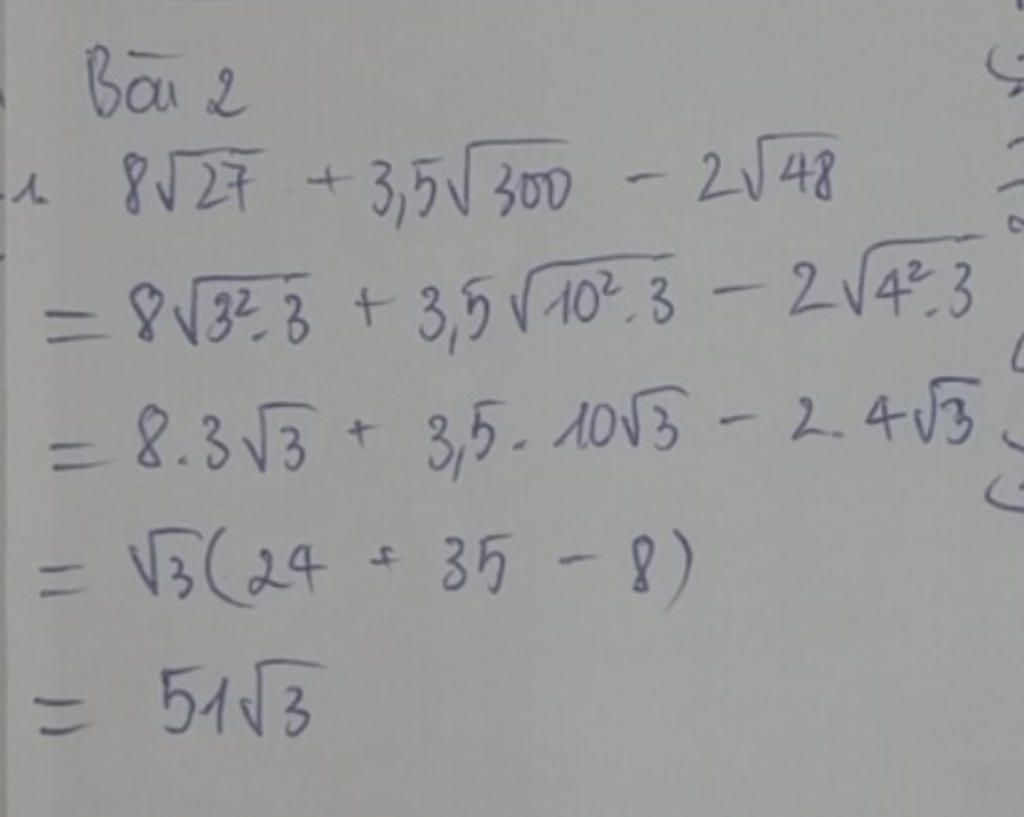 Bài 2
1. 8√27 + 3,5√300 - 2√48
= 8√3².3 + 3,5√10².3 - 2√4².3
= 8.3√3 + 3,5.10√3 - 2.4√3
= √3(24 + 35 - 8)
= 51√3